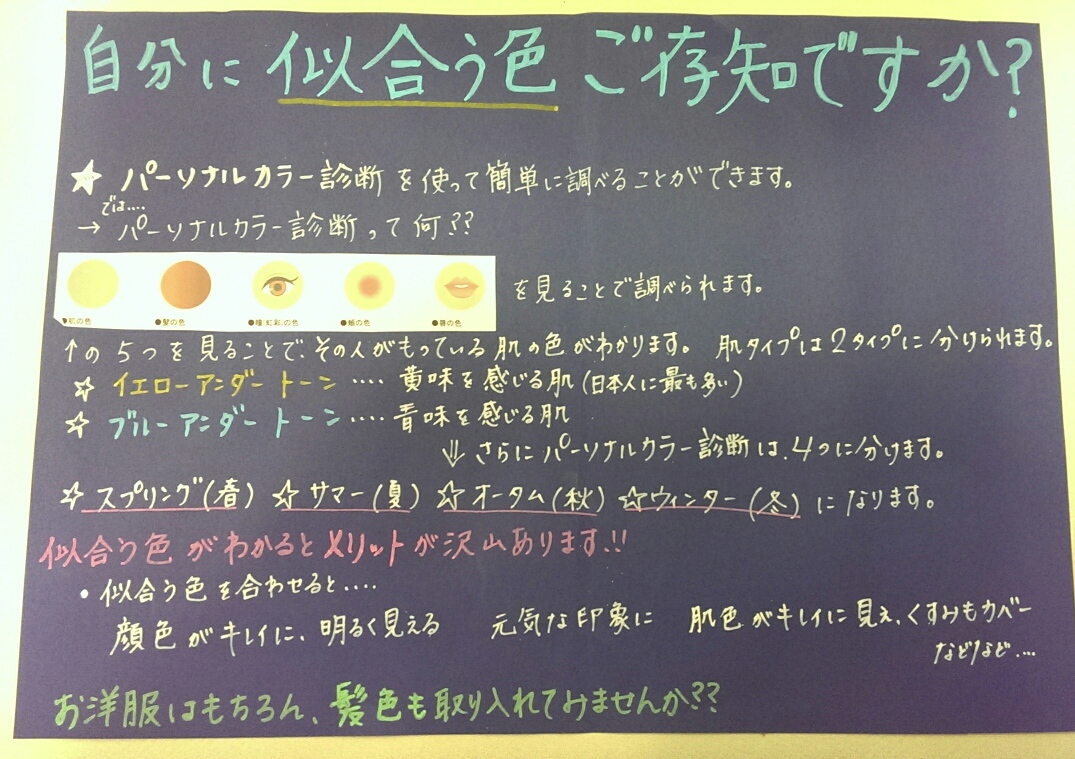 自分に似合う色ご存知ですか?
☆パーソナルカラー診断を使って簡単に調べることができます。
では‥‥
→パーソナルカラー診断って何??
●肌の色 ●髪の色 ●瞳(虹彩)の色 ●頬の色 ●唇の色
を見ることで調べられます。
↑の5つを見ることで、その人がもっている肌の色がわかります。 肌タイプは2タイプに分けられます。
☆ イエローアンダートーン‥‥ 黄味を感じる肌(日本人に最も多い)
☆ ブルーアンダートーン‥‥ 青味を感じる肌
⇓ さらにパーソナルカラー診断は、4つに分けます。
☆スプリング(春) ☆サマー(夏) ☆オータム(秋) ☆ウィンター(冬)になります。
似合う色がわかるとメリットが沢山あります!!
・似合う色を合わせると‥‥
顔色がキレイに、明るく見える 元気な印象に 肌色がキレイに見え、くすみもカバー
などなど‥‥
お洋服はもちろん、髪色も取り入れてみませんか??